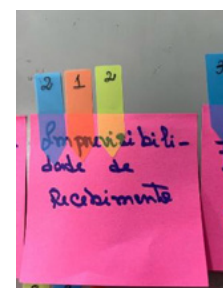 2 1 2
Imprevisibili-
dade de
Recebimento